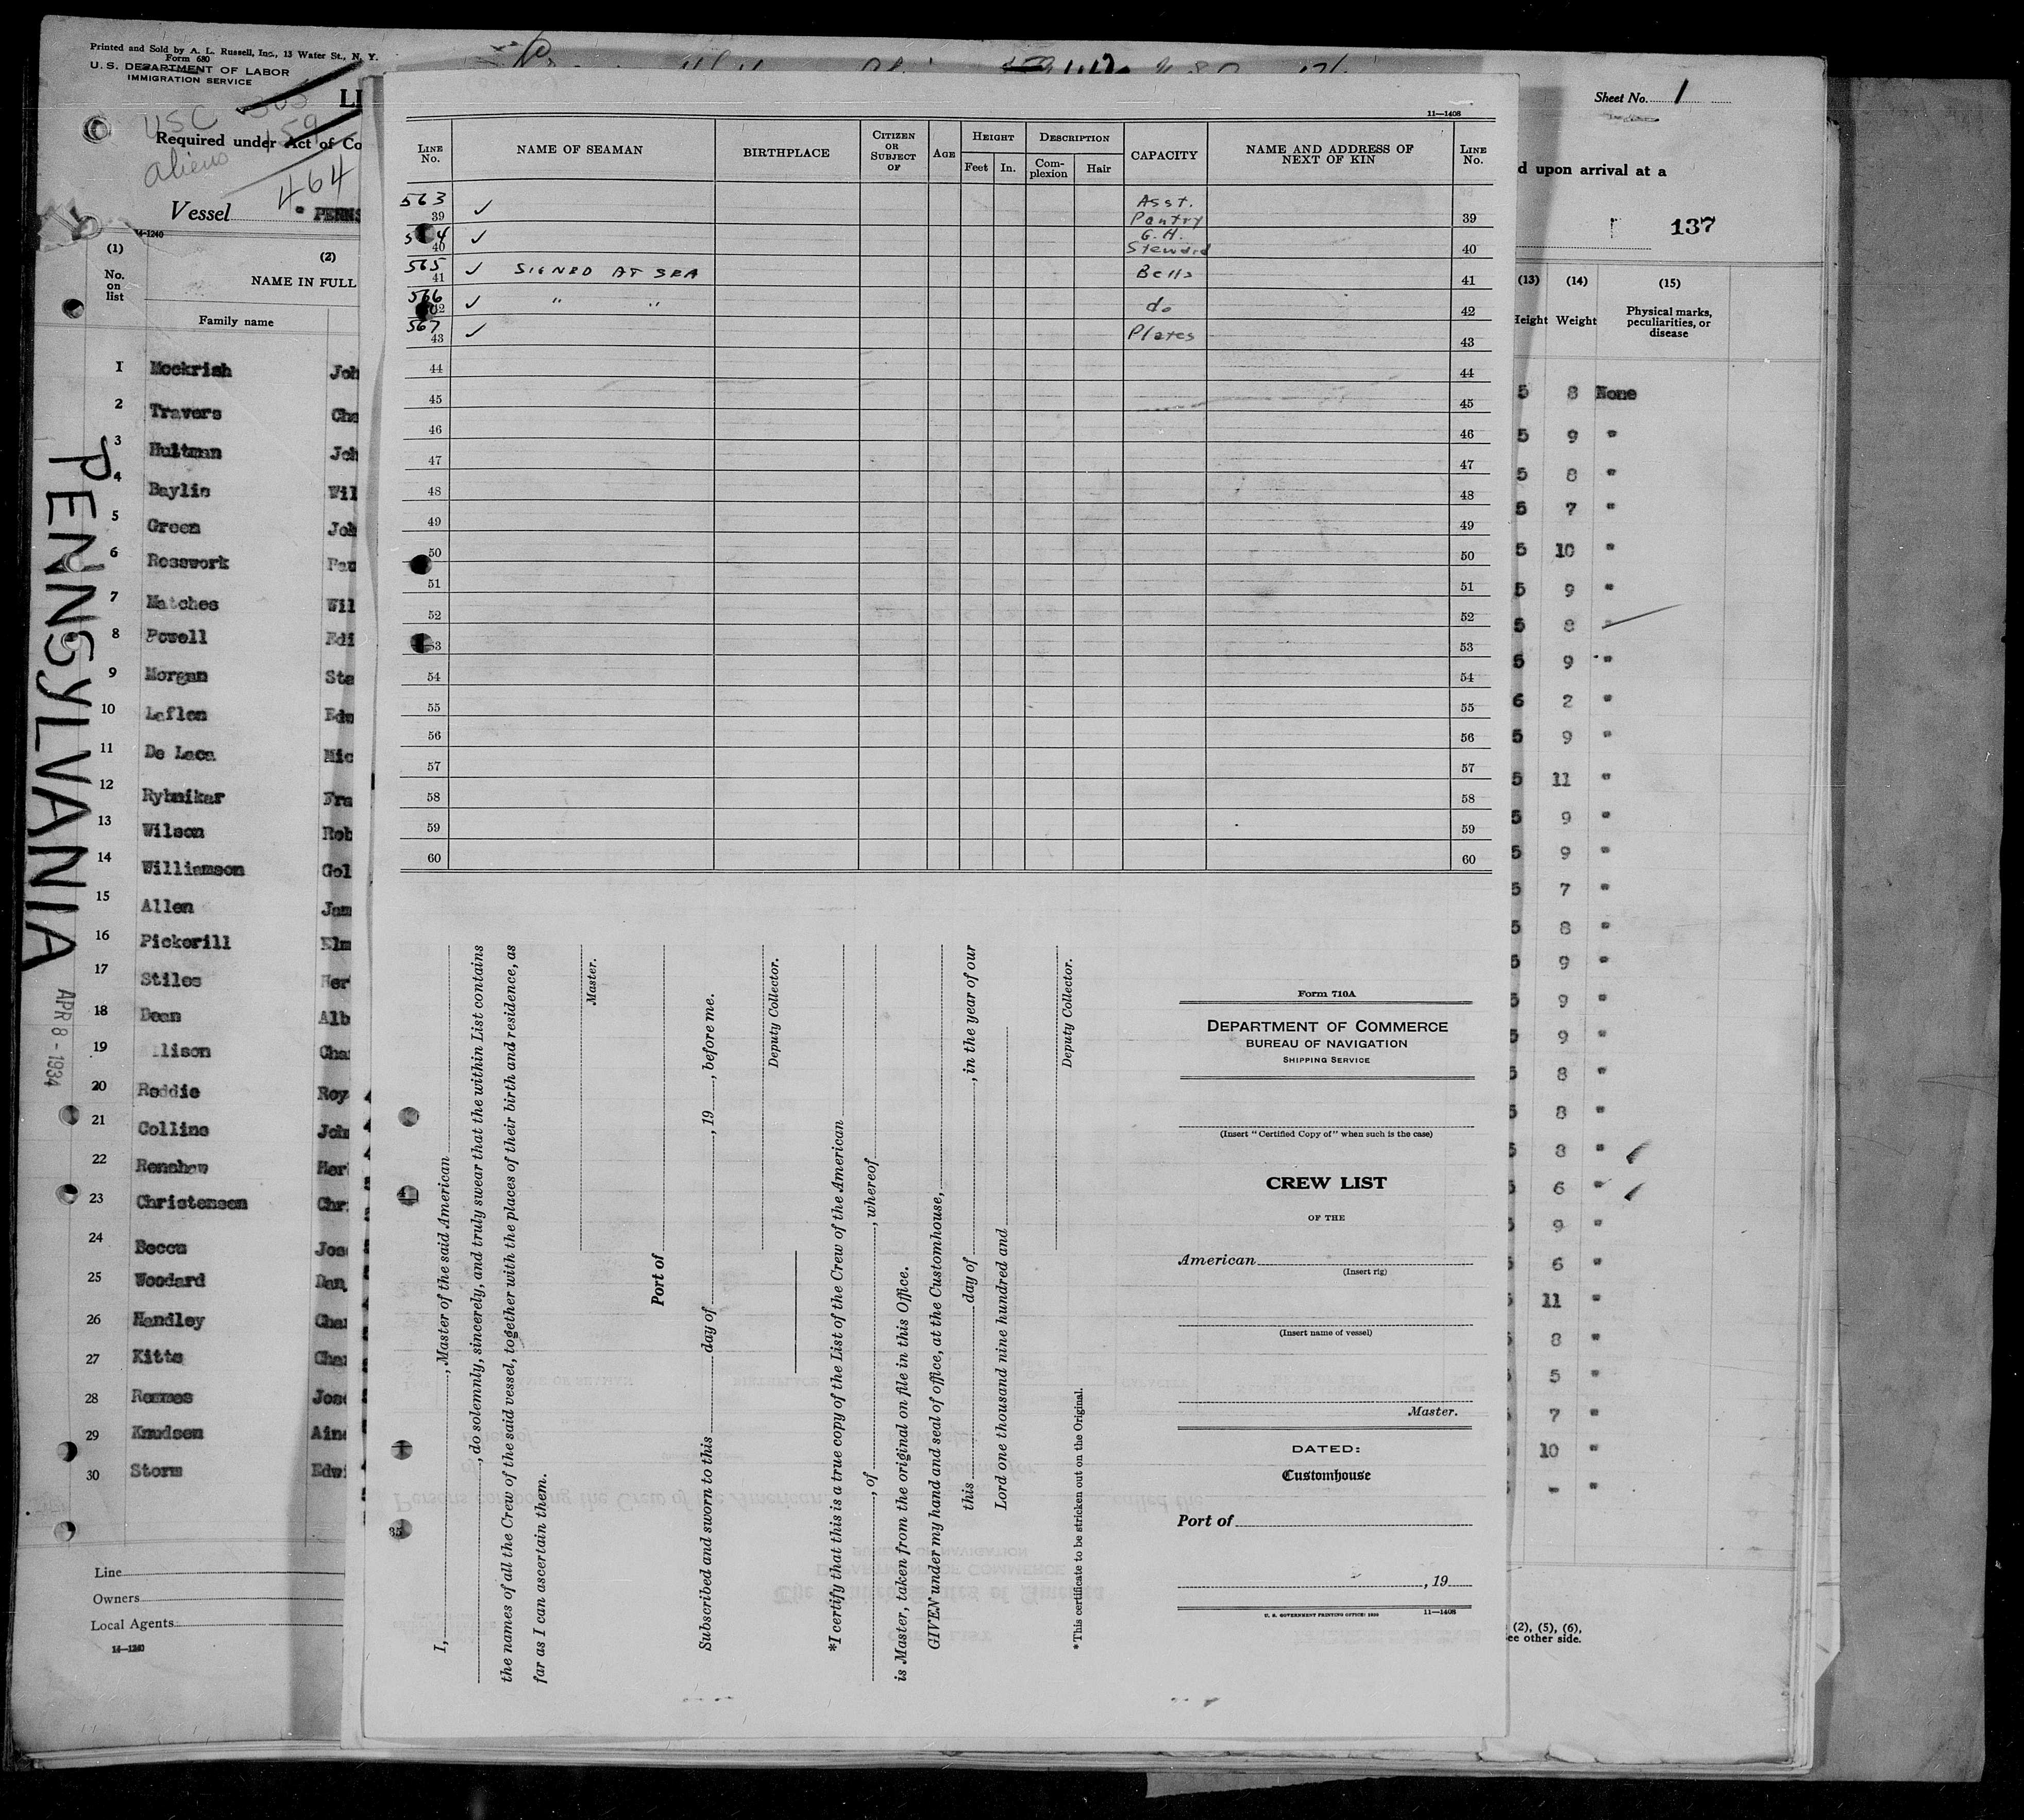 Printed and Sold by A. L. Russell, Inc., 13 Water St., N. Y.
Form 680
U. S. DEPARTMENT OF LABOR
IMMIGRATION SERVICE
USC 305
aliens 159
464
LI
Required under Act of Co
Vessel PENNS
14-1240
(1) (2)
No. on list
NAME IN FULL
Family name
1 Mockrish Joh
2 Travers Cha
3 Hultman Joh
4 Baylis Wil
5 Green Joh
6 Rosswork Pau
7 Matches Wil
8 Powell Edi
9 Morgan Sta
10 Laflen Edw
11 De Laca Mic
12 Rybnikar Fra
13 Wilson Rob
14 Williamson Gol
15 Allen Jam
16 Pickerill Elm
17 Stiles Her
18 Dean Alb
19 llison Cha
20 Reddie Roy
21 Collins Joh
22 Renshaw Her
23 Christensen Chr
24 Beccu Jos
25 Woodard Dan
26 Handley Cha
27 Kitts Cha
28 Rommes Jos
29 Knudsen Ain
30 Storm Edwi
Line
Owners
Local Agents
14—1240
PENNSYLVANIA
APR 8 - 1934
11—1408
LINE No.
NAME OF SEAMAN
BIRTHPLACE
CITIZEN OR SUBJECT OF
AGE
HEIGHT
Feet In.
DESCRIPTION
Complexion Hair
CAPACITY
NAME AND ADDRESS OF NEXT OF KIN
LINE No.
563 39 ✓ Asst. Pantry 39
564 40 ✓ G.H. Steward 40
565 41 ✓ SIGNED AT SEA Bells 41
566 42 ✓ " " do 42
567 43 ✓ Plates 43
44 44
45 45
46 46
47 47
48 48
49 49
50 50
51 51
52 52
53 53
54 54
55 55
56 56
57 57
58 58
59 59
60 60
I, , Master of the said American
, do solemnly, sincerely, and truly swear that the within List contains
the names of all the Crew of the said vessel, together with the places of their birth and residence, as
far as I can ascertain them.
Master.
Port of
Subscribed and sworn to this day of , 19 , before me.
Deputy Collector.
*I certify that this is a true copy of the List of the Crew of the American
, of , whereof
is Master, taken from the original on file in this Office.
GIVEN under my hand and seal of office, at the Customhouse,
this day of , in the year of our
Lord one thousand nine hundred and
Deputy Collector.
*This certificate to be stricken out on the Original.
Form 710A
DEPARTMENT OF COMMERCE
BUREAU OF NAVIGATION
SHIPPING SERVICE
(Insert "Certified Copy of" when such is the case)
CREW LIST
OF THE
American
(Insert rig)
(Insert name of vessel)
Master.
DATED:
Customhouse
Port of
, 19
U. S. GOVERNMENT PRINTING OFFICE: 11—1408
Sheet No. 1
d upon arrival at a
137
(13) (14) (15)
Height Weight Physical marks, peculiarities, or disease
5 8 None
5 9 "
5 8 "
5 7 "
5 10 "
5 9 "
5 8 "
5 9 "
6 2 "
5 9 "
5 11 "
5 9 "
5 9 "
5 7 "
5 8 "
5 9 "
5 9 "
5 9 "
5 8 "
5 8 "
5 8 "
5 6 "
5 9 "
5 6 "
5 11 "
5 8 "
5 5 "
5 7 "
5 10 "
- "
(2), (5), (6),
ee other side.